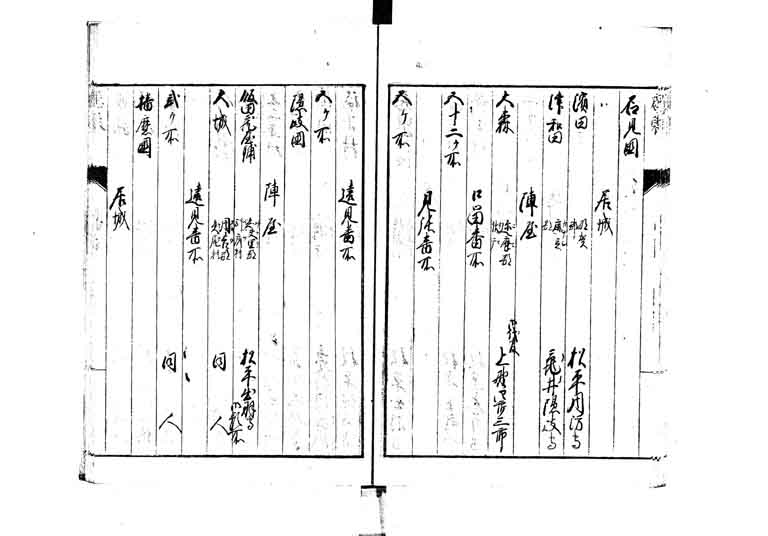 石見國
居城
濱田 那賀郡 松平周防守
津和田 鹿足郡 亀井隠岐守
陣屋
大森 御代官
口留番所
五十二ヶ所
見張番所
五ヶ所
遠見番所
八ヶ所
隠岐國
陣屋
松平出羽守 御預所
大城 周吉郡 同人
遠見番所
弐ヶ所 同人
播磨國
居城